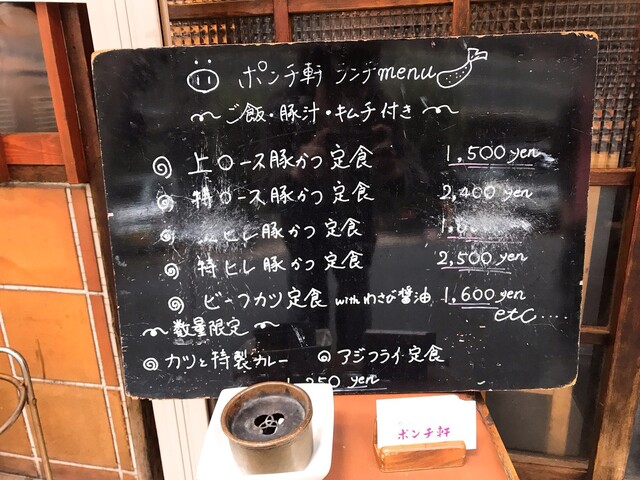 ポンチ軒 ランチmenu
～ご飯・豚汁・キムチ付き～
上ロース豚かつ定食 1,500 yen
特ロース豚かつ定食 2,400 yen
ヒレ豚かつ定食 yen
特ヒレ豚かつ定食 2,500 yen
ビーフカツ定食 with わさび醤油 1,600 yen
etc....
～数量限定～
カツと特製カレー アジフライ定食
1,250 yen
ポンチ軒